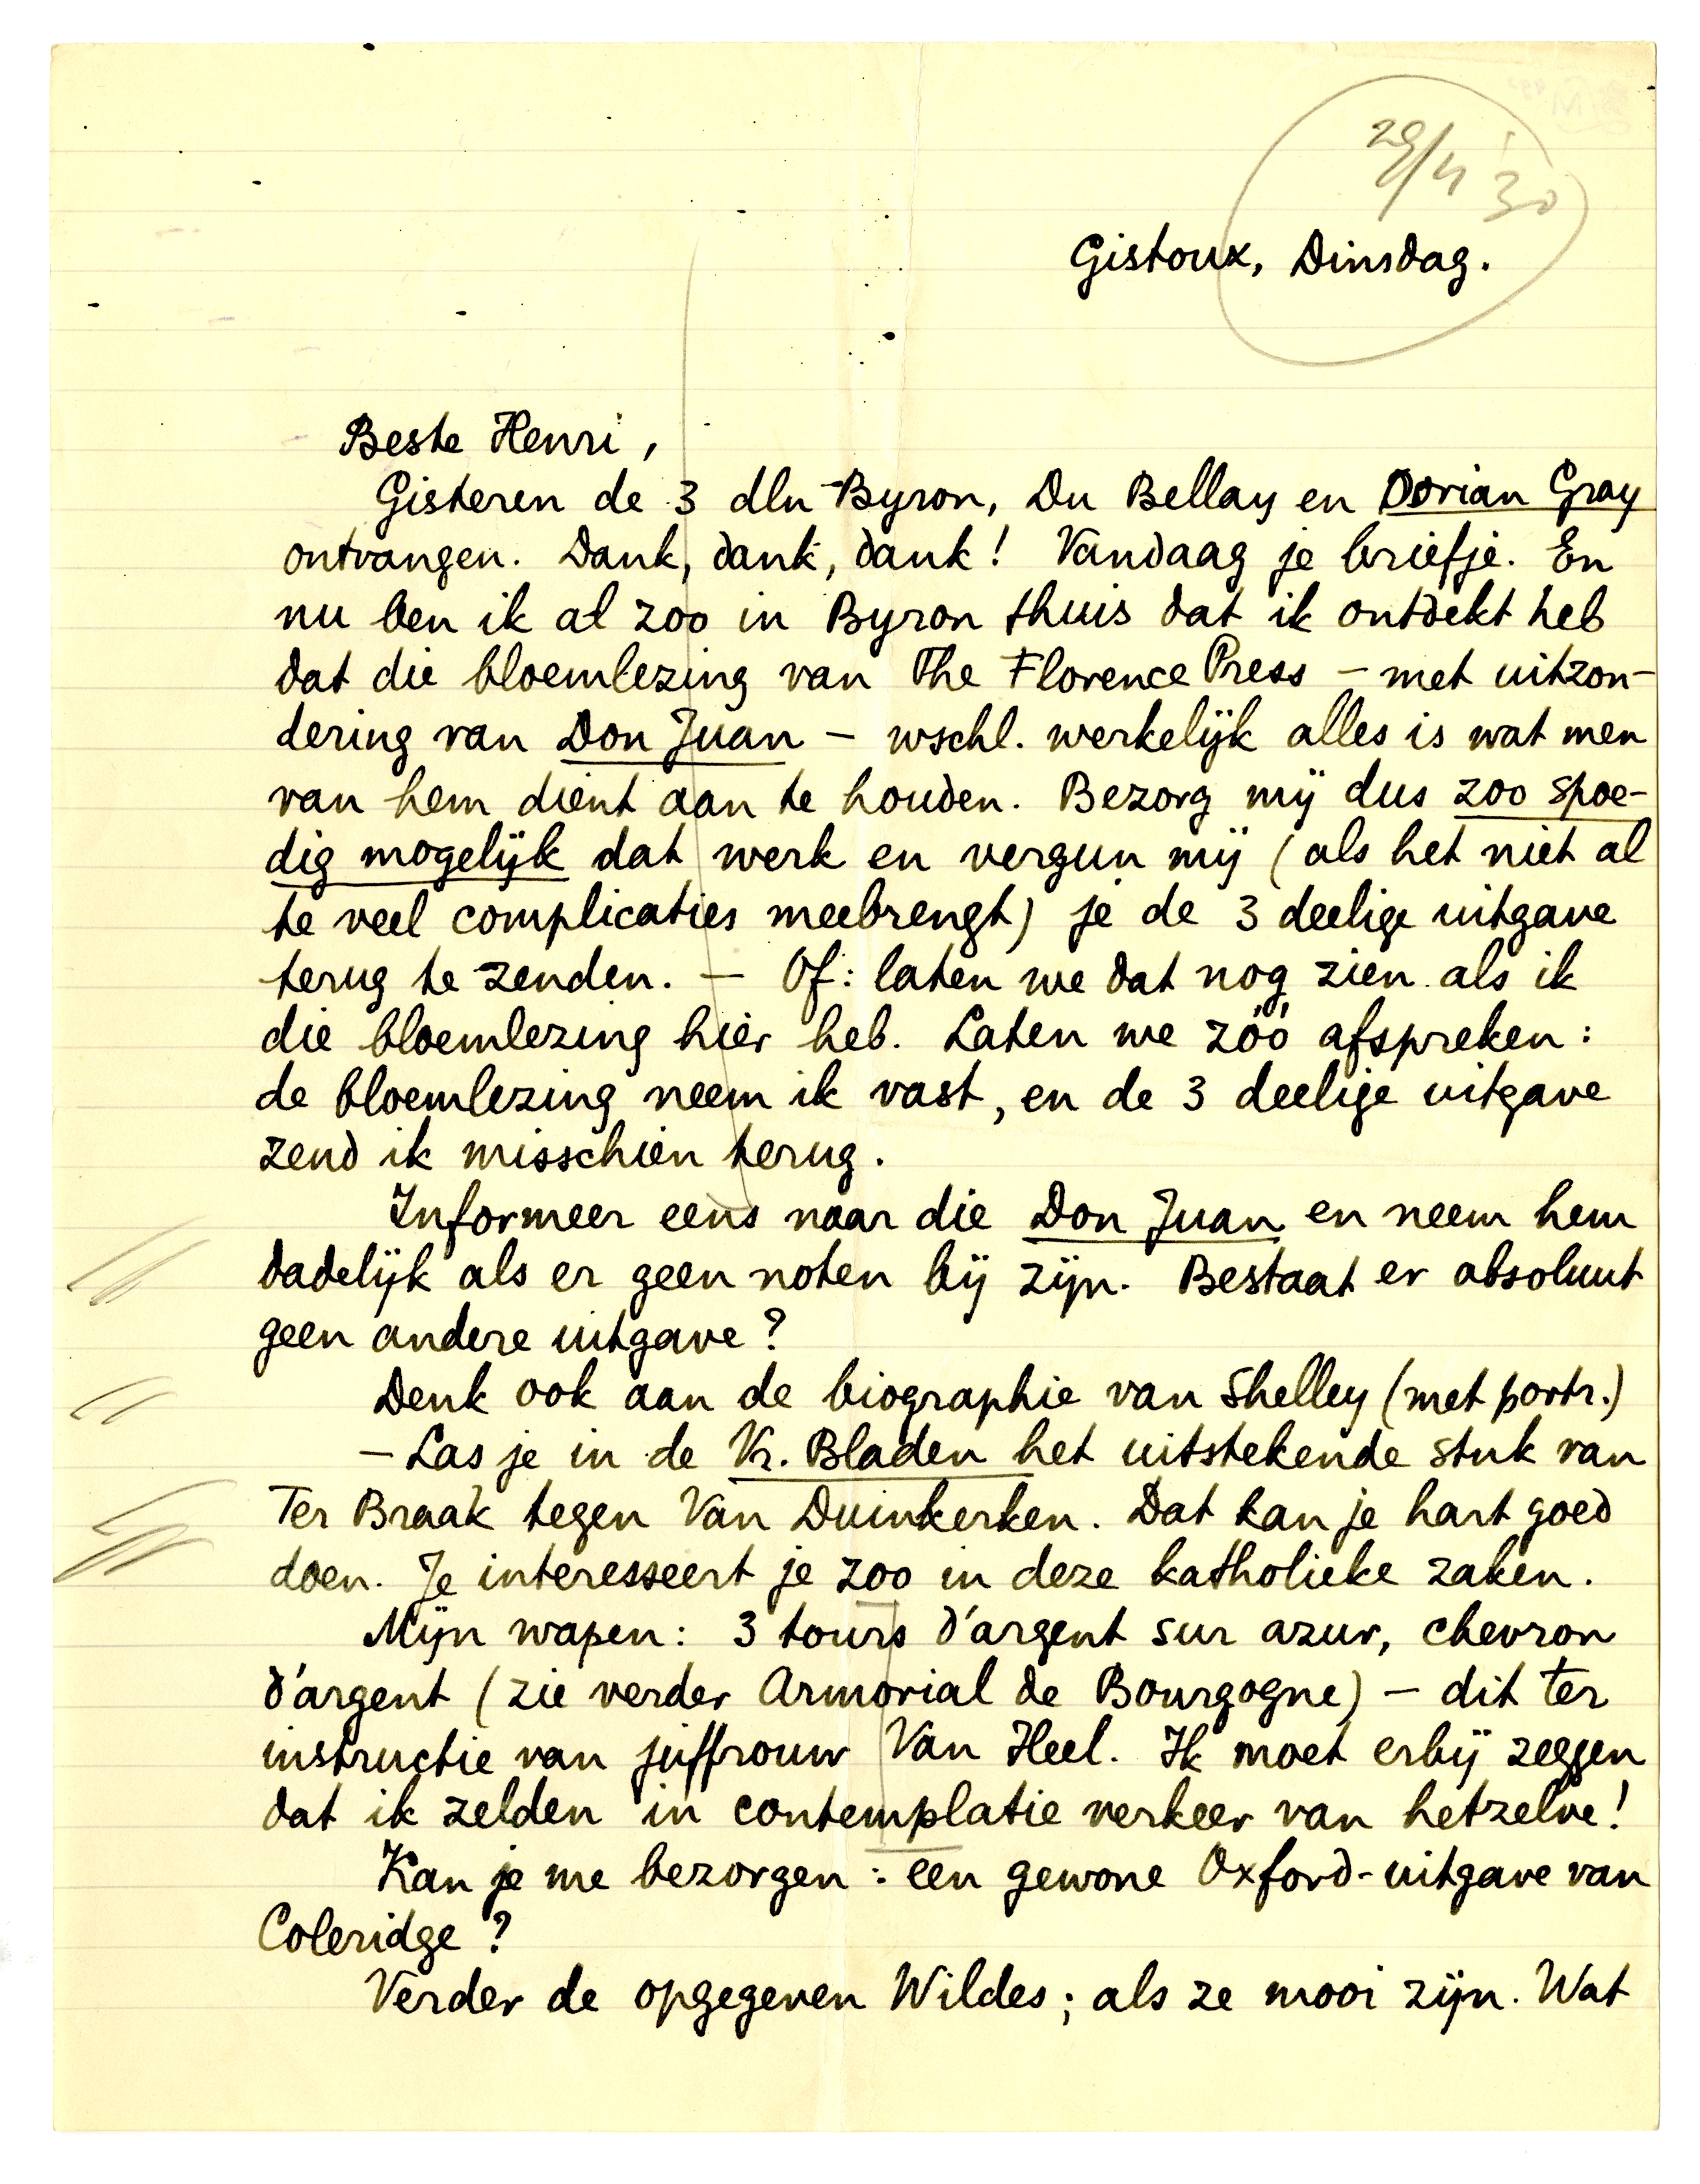 29/4 '30
Gistoux, Dinsdag.
Beste Henri,
Gisteren de 3 dln Byron, Du Bellay en Dorian Gray
ontvangen. Dank, dank, dank! Vandaag je briefje. En
nu ben ik al zoo in Byron thuis dat ik ontdekt heb
dat die bloemlezing van The Florence Press – met uitzon-
dering van Don Juan – wschl. werkelijk alles is wat men
van hem dient aan te houden. Bezorg mij dus zoo spoe-
dig mogelijk dat werk en vergun mij (als het niet al
te veel complicaties meebrengt) je de 3 deelige uitgave
terug te zenden. – Of: laten we dat nog zien als ik
die bloemlezing hier heb. Laten we zóó afspreken:
de bloemlezing neem ik vast, en de 3 deelige uitgave
zend ik misschien terug.
Informeer eens naar die Don Juan en neem hem
dadelijk als er geen noten bij zijn. Bestaat er absoluut
geen andere uitgave?
Denk ook aan de biographie van Shelley (met portr.)
– Las je in de Vr. Bladen het uitstekende stuk van
Ter Braak tegen Van Duinkerken. Dat kan je hart goed
doen. Je interesseert je zoo in deze katholieke zaken.
Mijn wapen: 3 tours d'argent sur azur, chevron
d'argent (zie verder Armorial de Bourgogne) – dit ter
instructie van juffrouw Van Heel. Ik moet erbij zeggen
dat ik zelden in contemplatie verkeer van hetzelve!
Kan je me bezorgen: een gewone Oxford-uitgave van
Coleridge?
Verder de opgegeven Wildes; als ze mooi zijn. Wat